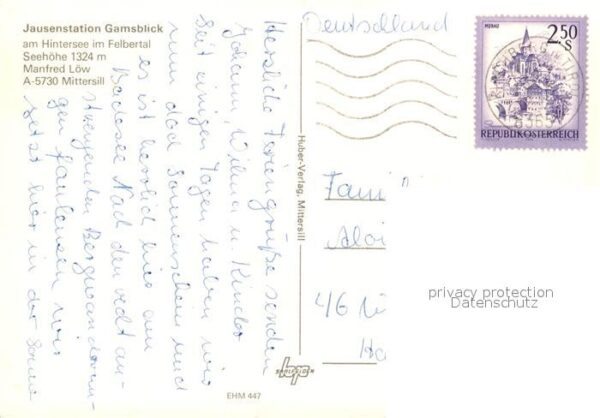 Jausenstation Gamsblick
am Hintersee im Felbertal
Seehöhe 1324 m
Manfred Löw
A-5730 Mittersill
Herzliche Feriengrüße senden
Johann, Wilma u. Kinder
Seit einigen Tagen haben wir
nun den Sonnenschein und
es ist herrlich hier am
Badesee Nach den recht an-
strengenden Bergwanderun-
gen faulenzen wir
jetzt hier in der Sonne
Huber-Verlag, Mittersill
EHM 447
Deutschland
MURAU
2.50
S
REPUBLIK ÖSTERREICH
Fami
Aloi
46
Ha
privacy protection
Datenschutz